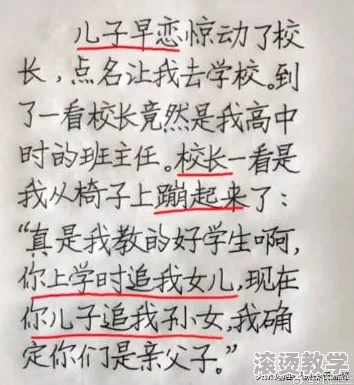 儿子早恋惊动了校
长，点名让我去学校。到
了一看校长竟然是我高中
时的班主任。校长一看是
我从椅子上蹦起来了：
“真是我教的好学生啊，
你上学时追我女儿，现在
你儿子追我孙女，我确
定你们是亲父子。”
滚烫教学